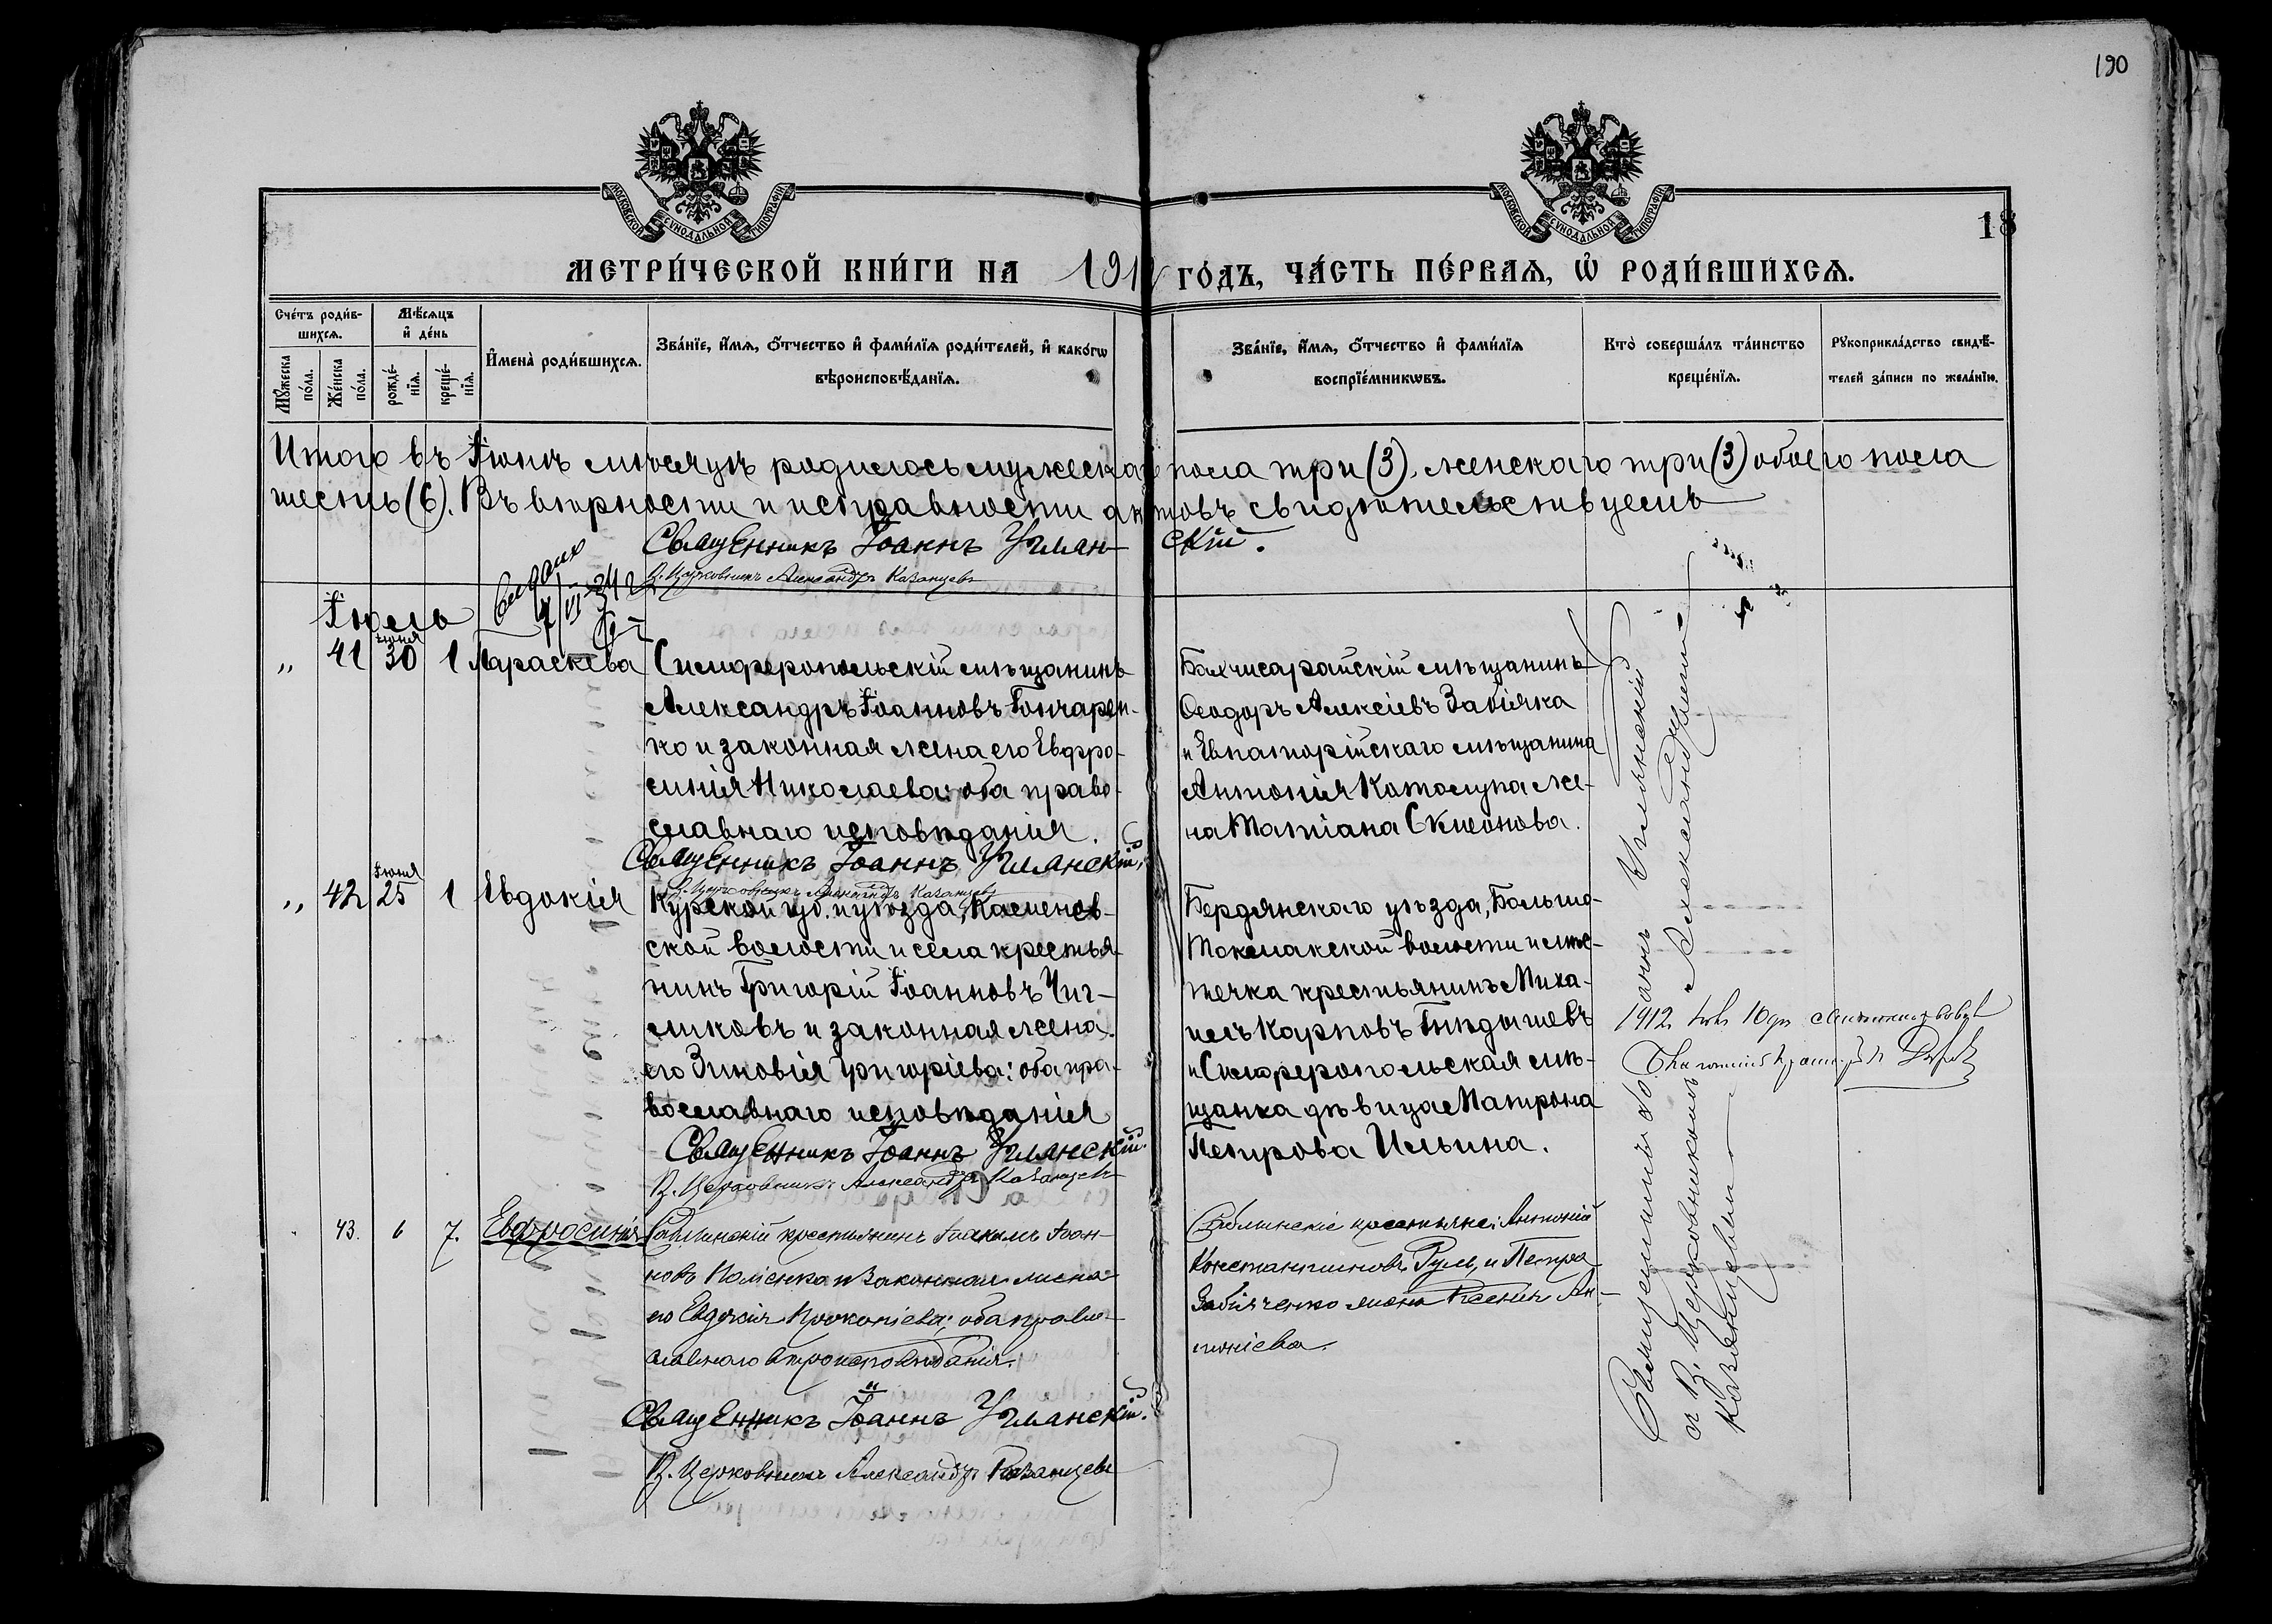 190
МОСКОВСКОЙ СѴНОДАЛЬНОЙ ТИПОГРАФІИ
МОСКОВСКОЙ СѴНОДАЛЬНОЙ ТИПОГРАФІИ
18
МЕТРИ́ЧЕСКОЙ КНИ́ГИ НА 1912 ГО́ДЪ, ЧА́СТЬ ПЕ́РВАѦ, Ѡ҆ РОДИ́ВШИХСѦ.
Сче́тъ роди́в-
шихсѧ.
Мѣ́сѧцъ
и҆ де́нь
Мꙋ́жеска
по́ла.
Же́нска
по́ла.
рожде́-
нїѧ.
креще́-
нїѧ.
И҆мена̀ роди́вшихсѧ.
Зва́нїе, и҆́мѧ, ѻ҆́тчество и҆ фами́лїѧ роди́телей, и҆ како́гѡ
вѣроисповѣ́данїѧ.
Зва́нїе, и҆́мѧ, ѻ҆́тчество и҆ фами́лїѧ
воспрїе́мникѡвъ.
Кто̀ соверша́лъ та́инство
креще́нїѧ.
Рꙋкоприкла́дство свидѣ́-
телей за́писи по жела́нїю.
Итого въ Іюнѣ мѣсяцѣ родилось мужескаго пола три (3), женскаго три (3) обоего пола
шесть (6). Въ вѣрности и исправности актовъ свидѣтельствуемъ
Священникъ Іоаннъ Углянскій.
В. Церковникъ Александръ Казанцевъ
Іюль
" 41 іюня 30 1 Параскева
Симферопольскій мѣщанинъ
Александръ Іоанновъ Гончарен-
ко и законная жена его Евфро-
синія Николаева: оба право-
славнаго исповѣданія.
Священникъ Іоаннъ Углянскій.
В. Церковникъ Александръ Казанцевъ
Бахчисарайскій мѣщанинъ
Ѳеодоръ Алексіевъ Забіяка
и Евпаторійскаго мѣщанина
Антонія Католупа же-
на Татіана Симонова.
" 42 Іюня 25 1 Евдокія
Курской губ. и уѣзда, Каменев-
ской волости и села крестья-
нинъ Григорій Іоанновъ Чиг-
ликовъ и законная жена
его Зиновія Григоріева: оба пра-
вославнаго исповѣданія
Священникъ Іоаннъ Углянскій.
В. Церковникъ Александръ Казанцевъ
Бердянскаго уѣзда, Больше-
Токмакской волости и мѣс-
течка крестьянинъ Миха-
илъ Карповъ Гнѣдашевъ
и Симферопольская мѣ-
щанка дѣвица Матрона
Петрова Ильина.
43. 6 7. Евфросинія
Саблинскій крестьянинъ Іоакимъ Іоан-
новъ и законная жена
его Евдокія Прокопіева; оба право-
славнаго вѣроисповѣданія.
Священникъ Іоаннъ Углянскій.
В. Церковникъ Александръ Казанцевъ
Саблинскіе крестьяне: Антоній
Константиновъ Руль, и Петра
Забіяченко жена Ксенія Ан-
тоніева.
Священникъ Іоаннъ Углянскій
съ В. Церковникомъ Александромъ
Казанцевымъ
1912